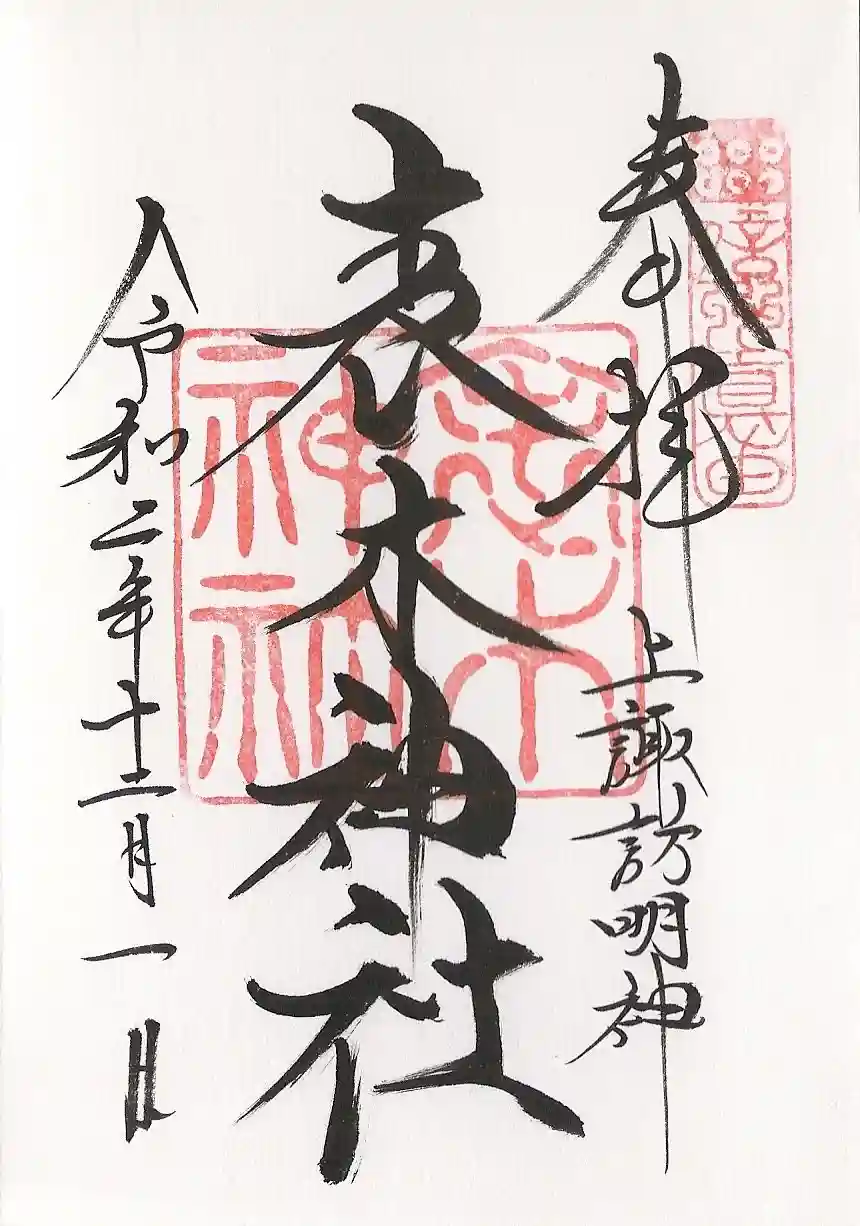 奉拝
上諏訪明神
表木神社
令和二年十二月一日